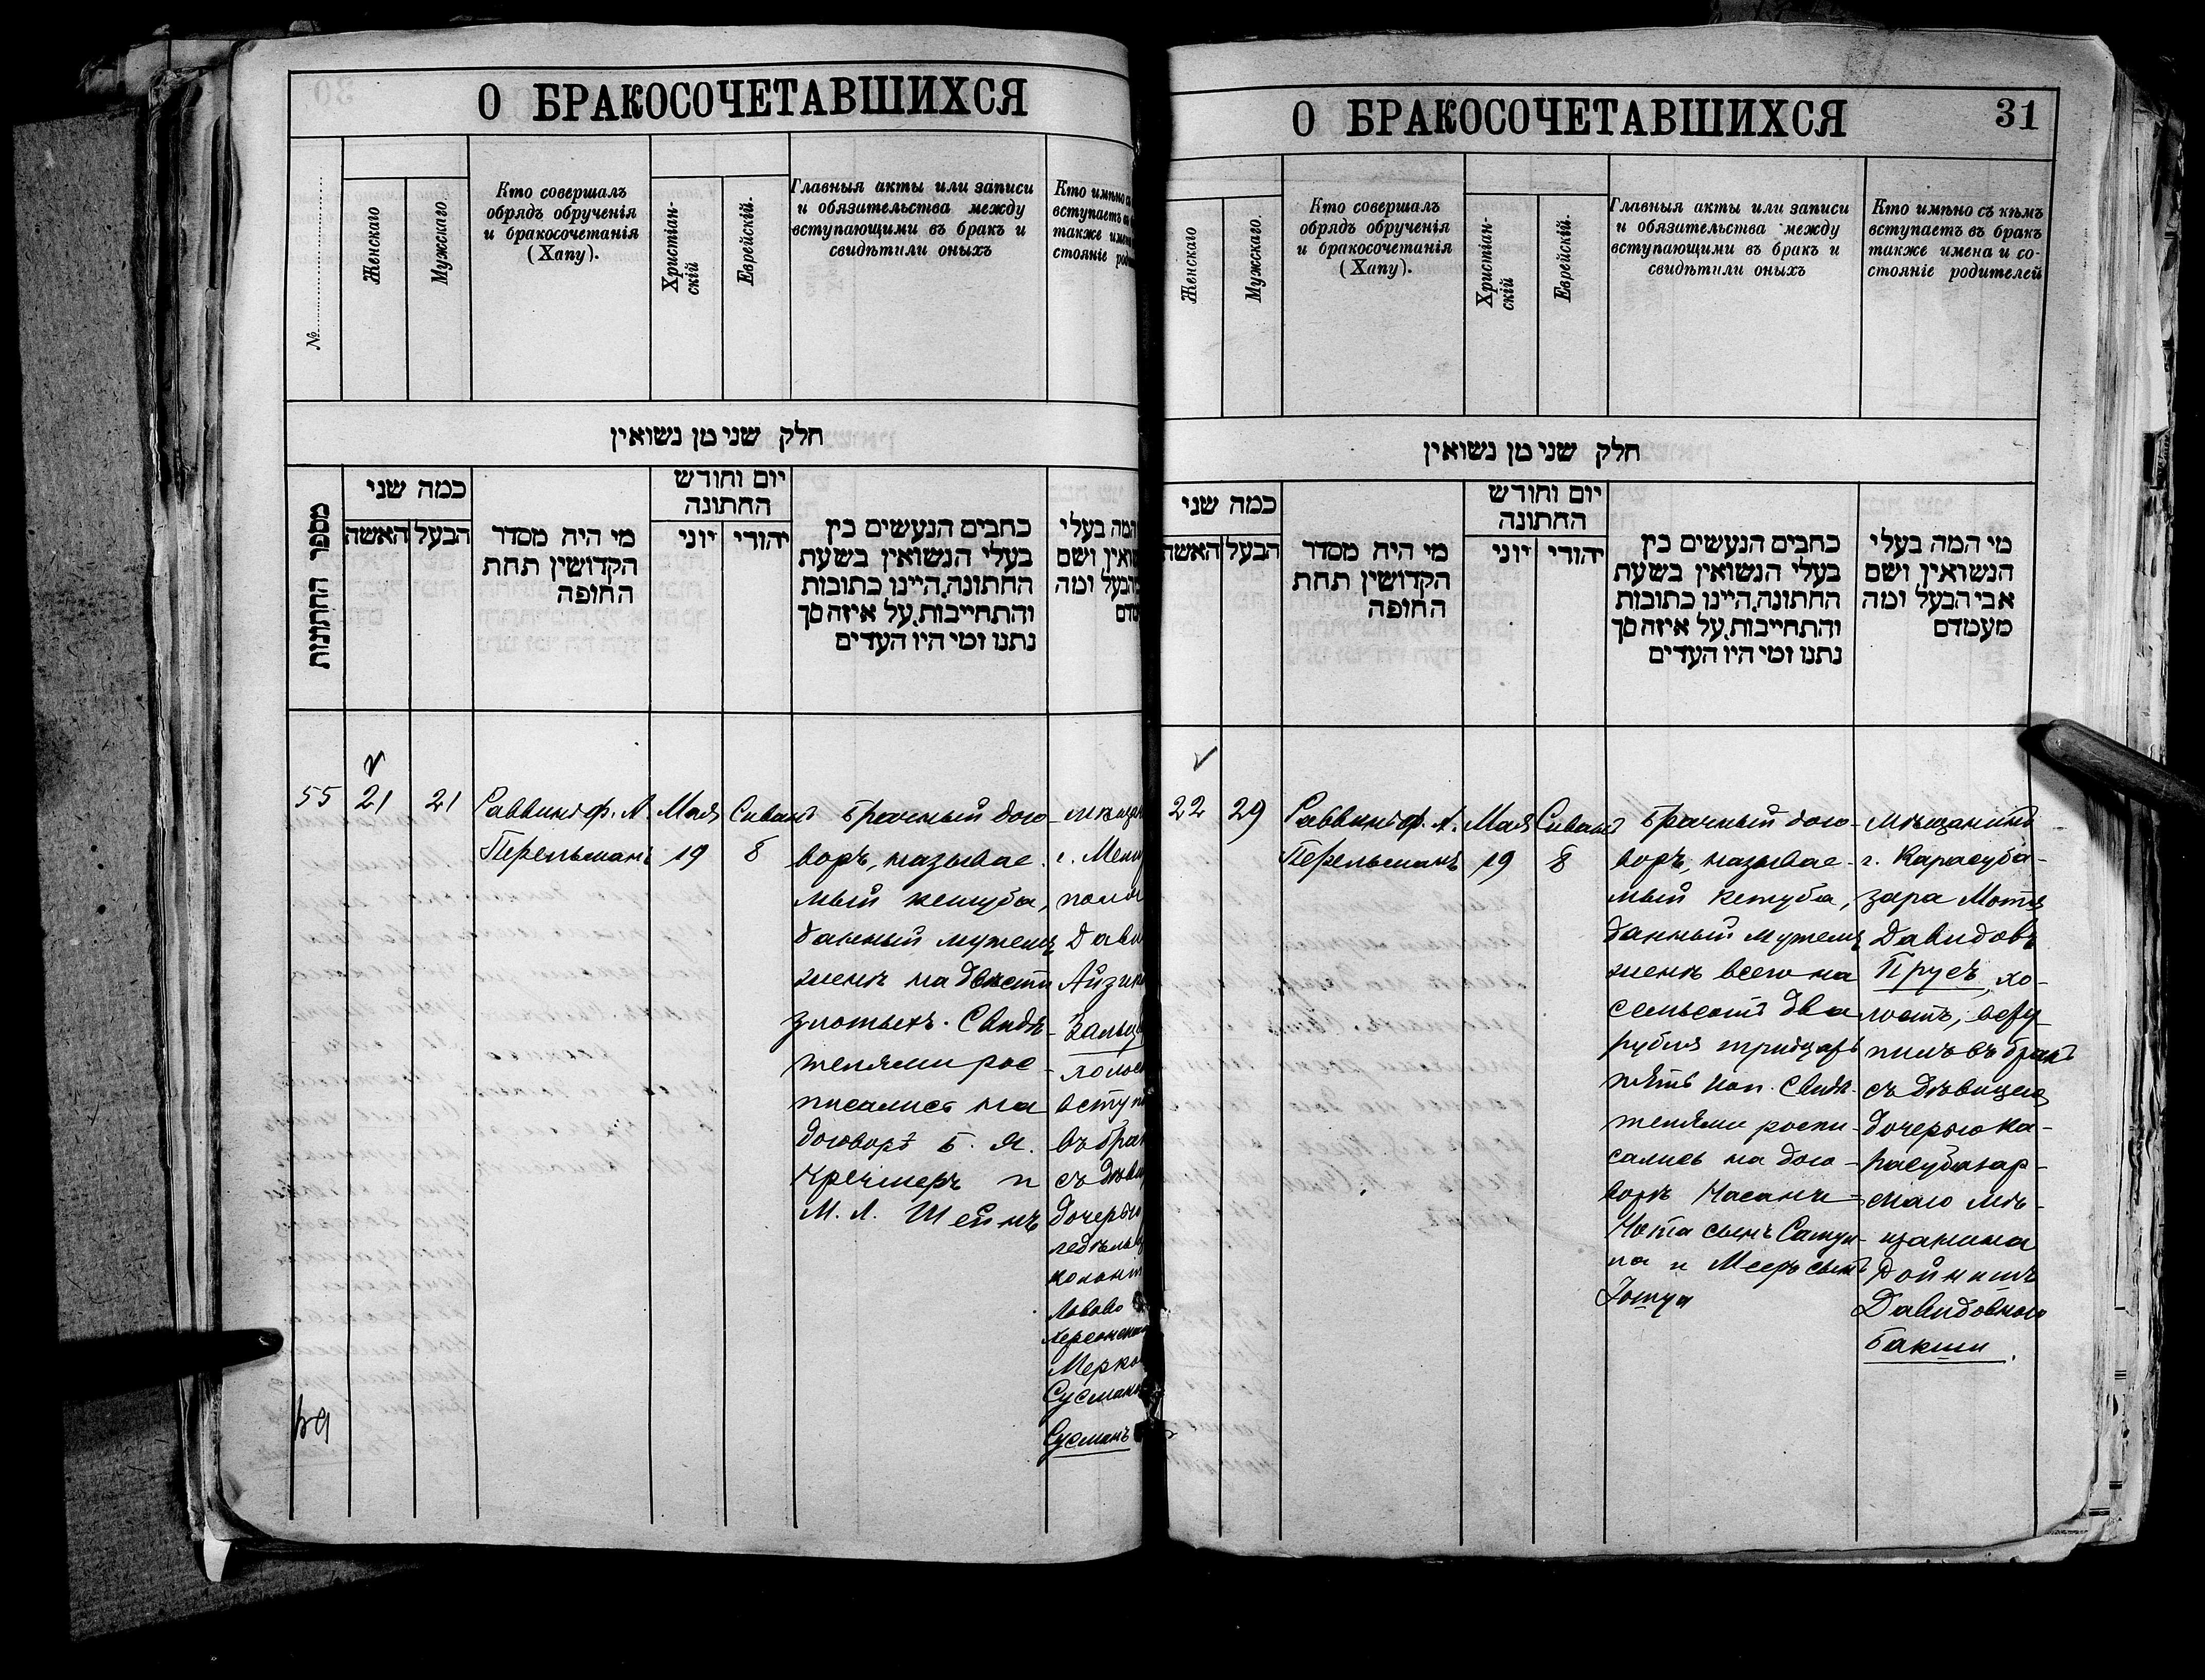 О БРАКОСОЧЕТАВШИХСЯ
№
Женскаго
Мужскаго
Кто совершалъ
обрядъ обрученія
и бракосочетанія
(Хапу).
Христіан-
скій
Еврейскій.
Главныя акты или записи
и обязительства между
вступающими въ бракъ и
свидѣтили оныхъ
Кто имѣно
вступаетъ
также имена
стояніе
חלק שני מן נשואין
מספר החתונות
כמה שני
האשה
הבעל
מי היה מסדר
הקדושין תחת
החופה
יום וחודש
החתונה
יוני
יהודי
כתבים הנעשים בין
בעלי הנשואין בשעת
החתונה.היינו כתובות
והתחייבות.על איזה סך
נתנו ומי היו העדים
המה בעלי
ושם
הבעל ומה
55
21
21
Раввинъ ф. А.
Перельманъ
Мая
19
Сиванъ
8
Брачный дого-
воръ, называе-
мый кетуба,
данный мужемъ
женѣ на двѣсти
злотыхъ. Свидѣ-
телями рос-
писались на
договорѣ Б. Я.
Кречмеръ и
М. Л. Шейнъ
г.
въ
съ
дочерью
Сусманъ
О БРАКОСОЧЕТАВШИХСЯ
31
Женскаго
Мужскаго.
Кто совершалъ
обрядъ обрученія
и бракосочетанія
(Хапу).
Христіан-
скій
Еврейскій.
Главныя акты или записи
и обязительства между
вступающими въ бракъ и
свидѣтили оныхъ
Кто имѣно съ кѣмъ
вступаетъ въ бракъ
также имена и со-
стояніе родителей
חלק שני מן נשואין
כמה שני
האשה
הבעל
מי היה מסדר
הקדושין תחת
החופה
יום וחודש
החתונה
יוני
יהודי
כתבים הנעשים בין
בעלי הנשואין בשעת
החתונה.היינו כתובות
והתחייבות.על איזה סך
נתנו ומי היו העדים
מי המה בעלי
הנשואין ושם
אבי הבעל ומה
מעמדם
22
29
Раввинъ ф. А.
Перельманъ
Мая
19
Сиванъ
8
Брачный дого-
воръ, называе-
мый кетуба,
данный мужемъ
женѣ всего на
семьсотъ два
рубля тридцать
пять коп. Свидѣ-
телями роспи-
сались на дого-
ворѣ
сынъ Самуи-
ла и Мееръ сынъ
Іошуа
Мѣщанинъ
г. Карасуба-
зара Мотя
Давидовъ
Прусъ, хо-
лостъ, всту-
пилъ въ бракъ
съ дѣвицею
дочерью ка-
расубазар-
скаго мѣ-
щанина
Давидовною
Бакши.